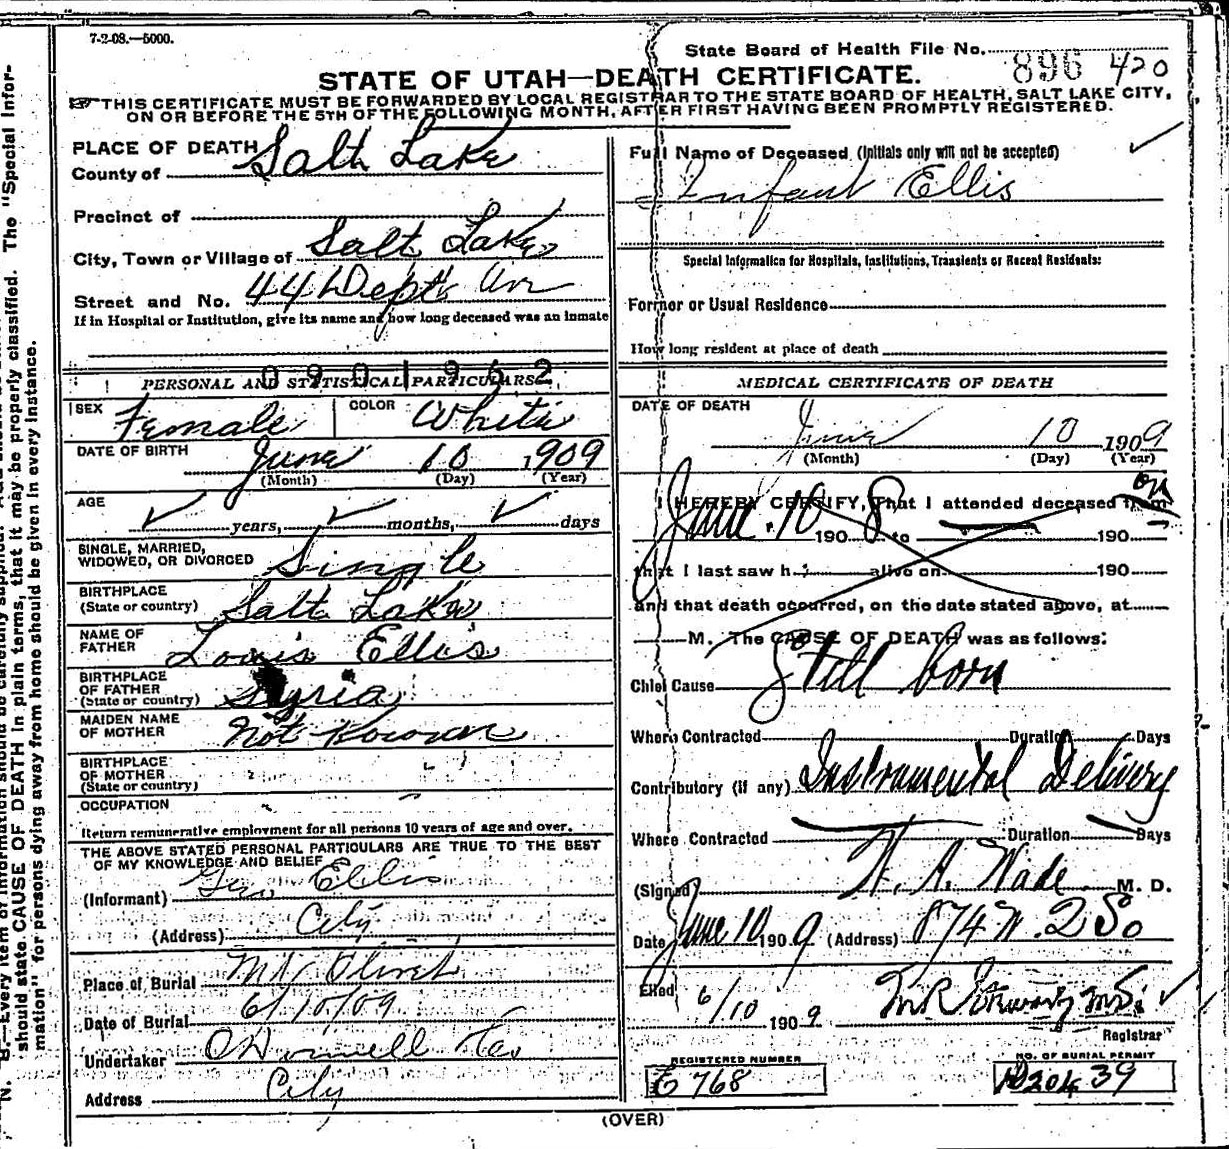 7-2-08.—5000.
State Board of Health File No. 896 420
STATE OF UTAH—DEATH CERTIFICATE.
THIS CERTIFICATE MUST BE FORWARDED BY LOCAL REGISTRAR TO THE STATE BOARD OF HEALTH, SALT LAKE CITY,
ON OR BEFORE THE 5TH OF THE FOLLOWING MONTH, AFTER FIRST HAVING BEEN PROMPTLY REGISTERED.
PLACE OF DEATH
County of Salt Lake
Precinct of
City, Town or Village of Salt Lake
Street and No. 44 Dept Av
If in Hospital or Institution, give its name and how long deceased was an inmate
0901952
PERSONAL AND STATISTICAL PARTICULARS
SEX Female COLOR White
DATE OF BIRTH June 10 1909
(Month) (Day) (Year)
AGE years, months, days
SINGLE, MARRIED,
WIDOWED, OR DIVORCED Single
BIRTHPLACE
(State or country) Salt Lake
NAME OF
FATHER Louis Ellis
BIRTHPLACE
OF FATHER
(State or country) Syria
MAIDEN NAME
OF MOTHER Not Known
BIRTHPLACE
OF MOTHER
(State or country)
OCCUPATION
Return remunerative employment for all persons 10 years of age and over.
THE ABOVE STATED PERSONAL PARTICULARS ARE TRUE TO THE BEST
OF MY KNOWLEDGE AND BELIEF
(Informant) Geo Ellis
(Address) City
Place of Burial Mt Olivet
Date of Burial 6/10/09
Undertaker O'Donnell & Co
Address City
Full Name of Deceased (Initials only will not be accepted)
Infant Ellis
Special Information for Hospitals, Institutions, Transients or Recent Residents:
Former or Usual Residence
How long resident at place of death
MEDICAL CERTIFICATE OF DEATH
DATE OF DEATH
June 10 1909
(Month) (Day) (Year)
I HEREBY CERTIFY, That I attended deceased from on
June 10 1908 to 190
that I last saw h alive on 190
and that death occurred, on the date stated above, at
M. The CAUSE OF DEATH was as follows:
Chief Cause Still born
Where Contracted Duration Days
Contributory (if any) Instrumental Delivery
Where Contracted Duration Days
(Signed) W. A. Wade M. D.
Date June 10 1909 (Address) 874 W. 2 So
Filed 6/10 1909
Registrar
REGISTERED NUMBER
E 768
NO. OF BURIAL PERMIT
39
(OVER)
N. B.—Every item of information should be carefully supplied.
should state CAUSE OF DEATH in plain terms, that it may be properly classified. The "Special Infor-
mation" for persons dying away from home should be given in every instance.